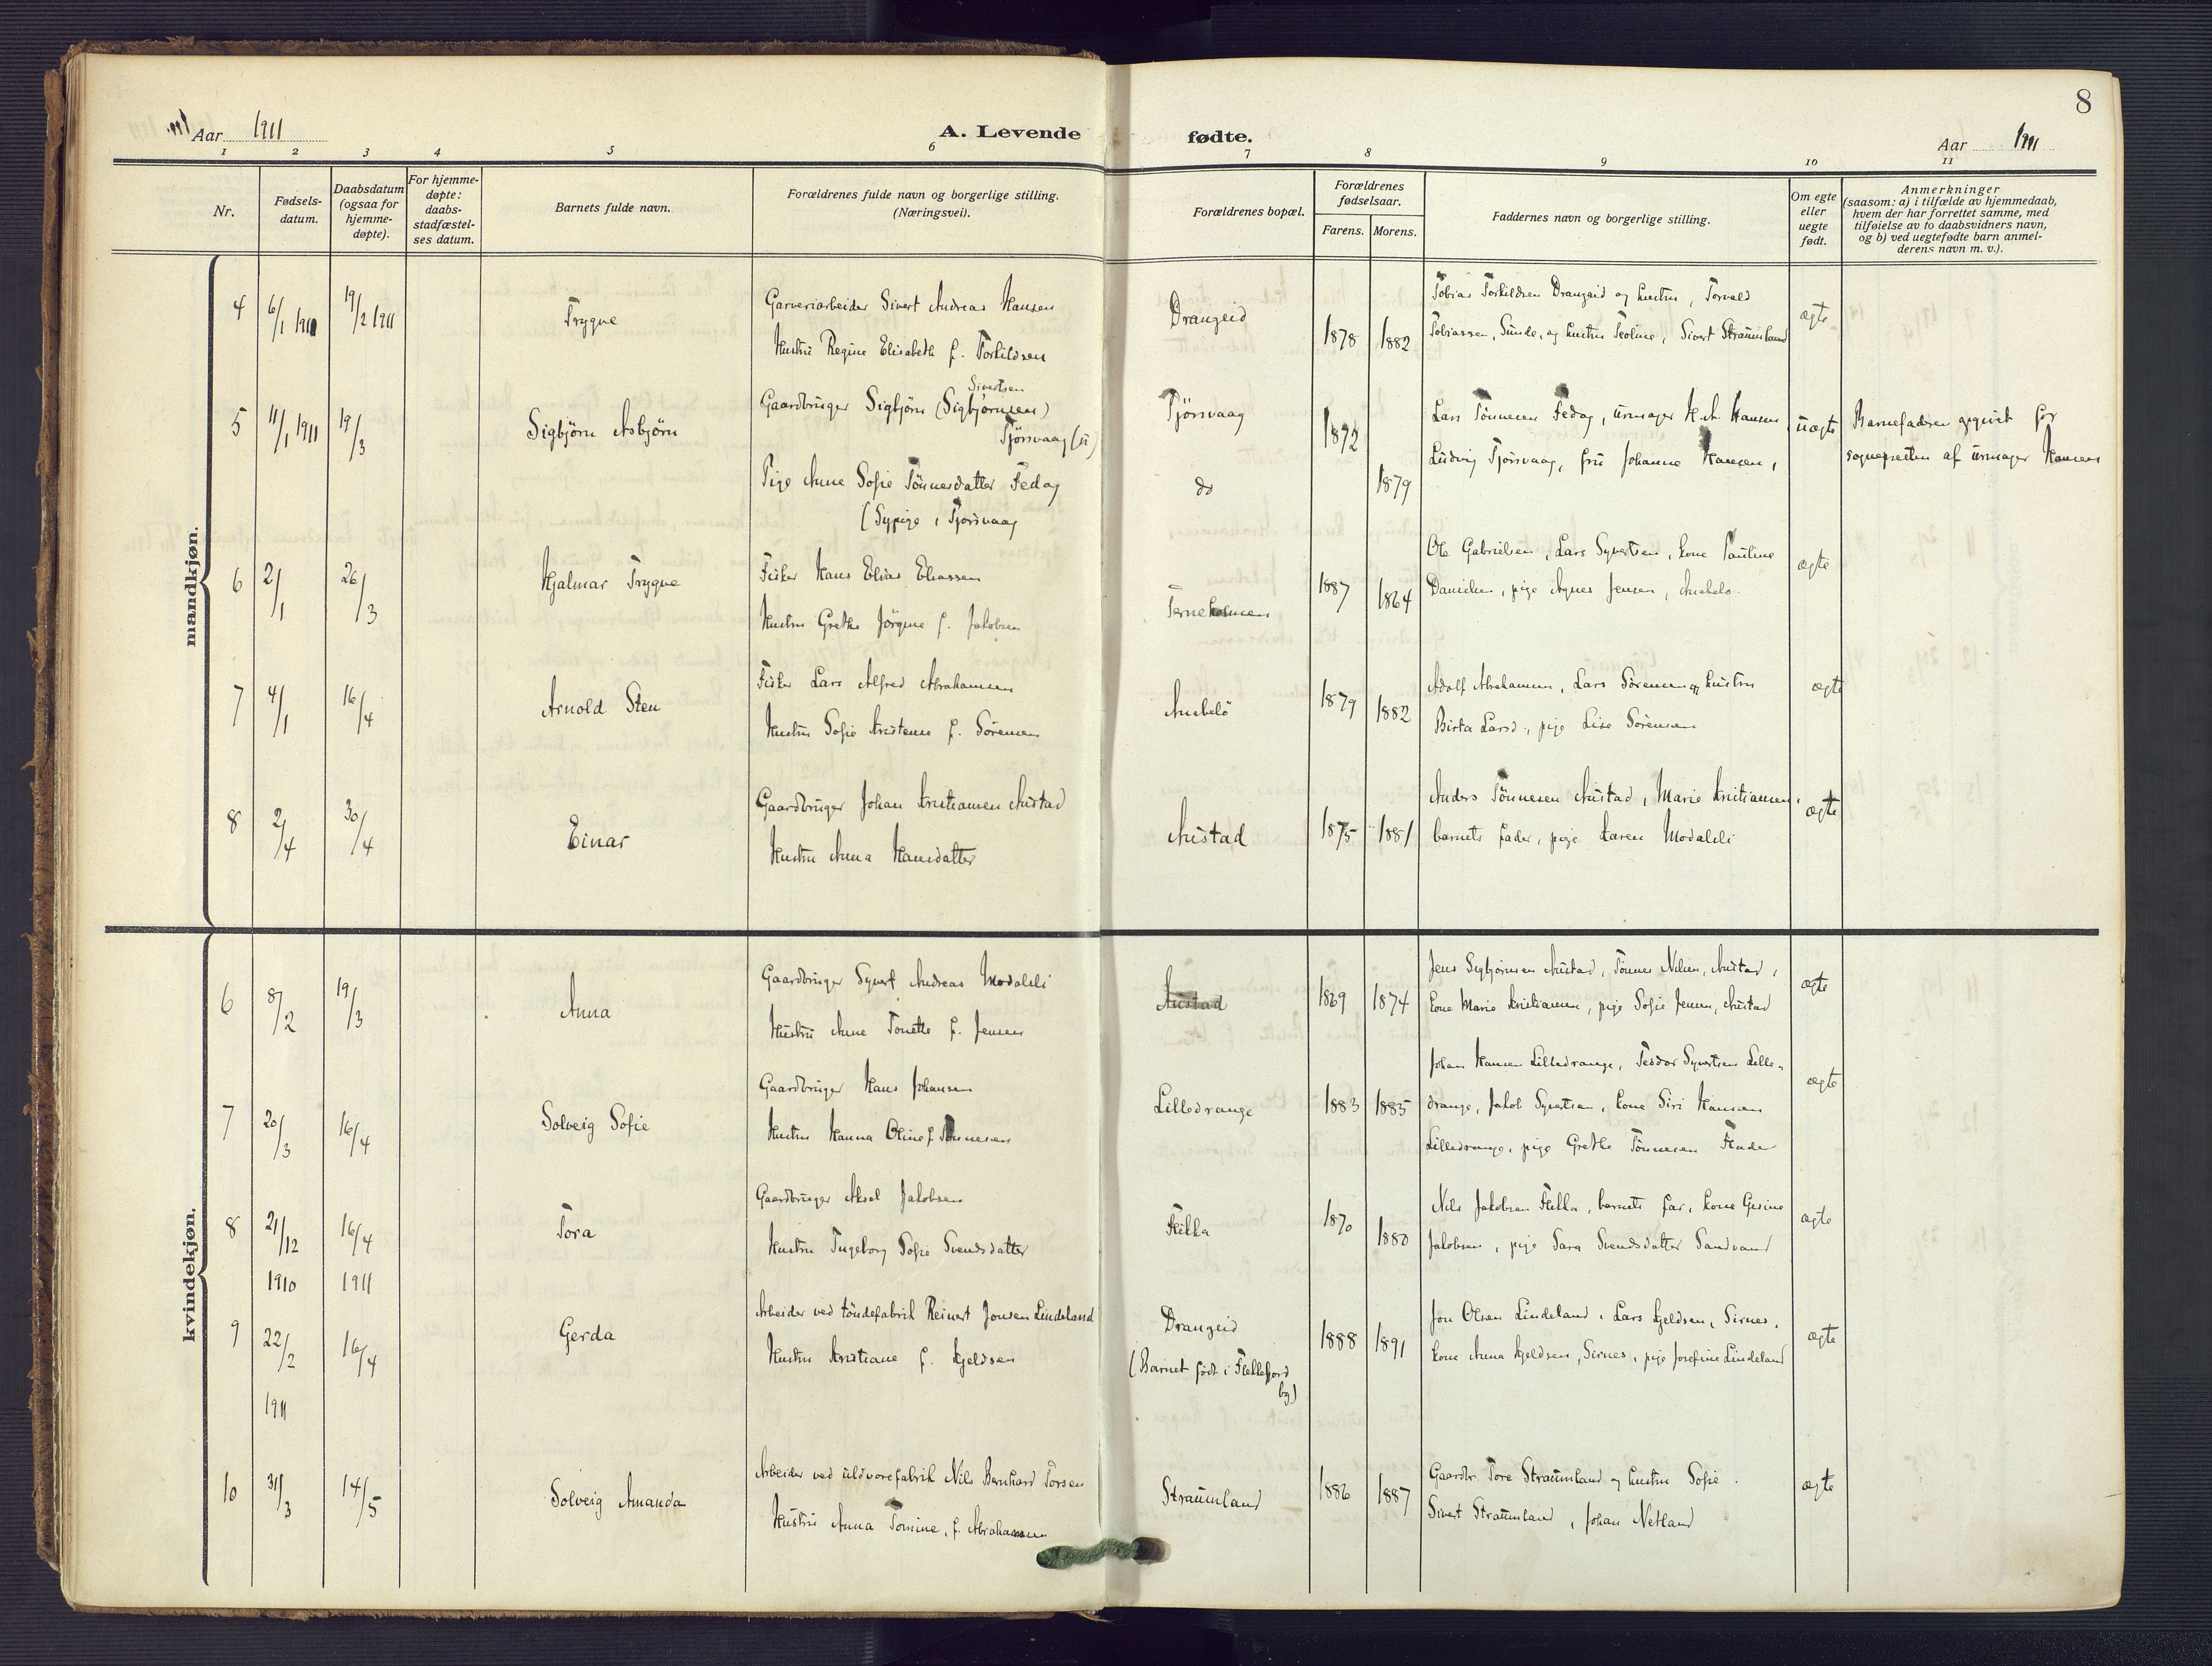 8
Aar 1911
A. Levende fødte.
Aar 1911
1 2 3 4 5 6 7 8 9 10 11
Nr.
Fødsels-
datum.
Daabsdatum
(ogsaa for
hjemme-
døpte).
For hjemme-
døpte:
daabs-
stadfæstel-
ses datum.
Barnets fulde navn.
Forældrenes fulde navn og borgerlige stilling.
(Næringsvei).
Forældrenes bopæl.
Forældrenes
fødselsaar.
Farens. Morens.
Faddernes navn og borgerlige stilling.
Om egte
eller
uegte
født.
Anmerkninger
(saasom: a) i tilfælde av hjemmedaab,
hvem der har forrettet samme, med
tilføielse av to daabsvidners navn,
og b) ved uegtefødte barn anmel-
derens navn m. v.).
mandkjøn.
4 6/1 1911 19/2 1911
Trygve
Garveriarbeider Sivert Andreas Hansen
Hustru Regine Elisabeth f. Torkildsen
Drangeid
1878 1882
Tobias Torkildsen Drangeid og hustru, Torvald
Tobiassen, Sunde, og hustru Teoline, Sivert Straumland
ægte
5 11/1 1911 19/3
Sigbjörn Asbjörn
Sivertsen
Gaardbruger Sigbjörn (Sigbjörnsen)
Tjörsvaag (u)
Pige Anne Sofie Tönnesdatter Fedog
(Sypige i Tjorsvaag
Tjörsvaag
do
1892
1879
Lars Tönnesen Fedog, urmager H. A. Hansen,
Ludvig Tjorsvaag, fru Johanne Hansen,
uægte
Barnefaderen opgivet for
sognepresten af urmager Hansen
6 2/1 26/3
Hjalmar Trygve
Fisker Hans Elias Eliassen
Hustru Grethe Jörgine f. Jakobsen
Terneholmen
1887 1864
Ole Gabrielsen, Lars Syvertsen, kone Pauline
Danielsen, pige Agnes Jensen, Anabelö.
ægte
7 4/1 16/4
Arnold Sten
Fisker Lars Alfred Abrahamsen
Hustru Sofie Kristense f. Sörensen
Anabelö
1879 1882
Adolf Abrahamsen, Lars Sörensen og hustru
Birta Larsd., pige Lise Sörensen
ægte
8 2/4 30/4
Einar
Gaardbruger Johan Kristiansen Austad
Hustru Anna Hansdatter
Austad
1875 1881
Anders Tönnesen Austad, Marie Kristiansen,
barnets fader, pige Karen Modalsli
ægte
kvindekjøn.
6 8/2 19/3
Anna
Gaardbruger Syvert Andreas Modalsli
Hustru Anne Tonette f. Jensen
Austad
1869 1874
Jens Sigbjörnsen Austad, Tönnes Nilsen, Austad,
kone Marie Kristiansen, pige Sofie Jensen, Austad
ægte
7 20/3 16/4
Solveig Sofie
Gaardbruger Hans Johansen
Hustru Hanna Oline f. Tönnesen
Lilledrange
1883 1885
Johan Hansen Lilledrange, Teodor Syvertsen Lille-
drange, Jakob Syvertsen, kone Siri Hansen
Lilledrange, pige Grethe Tönnesen
ægte
8 21/12 16/4
1910 1911
Tora
Gaardbruger Aksel Jakobsen
Hustru Ingeborg Sofie Svendsdatter
Flikka
1870 1880
Nils Jakobsen Flikka, barnets far, kone Gesine
Jakobsen, pige Sara Svendsdatter Sandvand
ægte
9 22/2 16/4
1911
Gerda
Arbeider ved töndefabrik Reinert Jonsen Lindeland
Hustru Kristiane f. Kjeldsen
Drangeid
(Barnet född i Flekkefjord
by)
1888 1891
Jon Olsen Lindeland, Lars Kjeldsen, Sirnes,
kone Anna Kjeldsen, Sirnes, pige Josefine Lindeland
ægte
10 31/3 14/5
Solveig Amanda
Arbeider ved uldvarefabrik Nils Bernhard Torsen
Hustru Anna Tomine, f. Abrahamsen
Straumland
1886 1887
Gaardbr. Tore Straumland og hustru Sofie
Sivert Straumland, Johan Netland
ægte